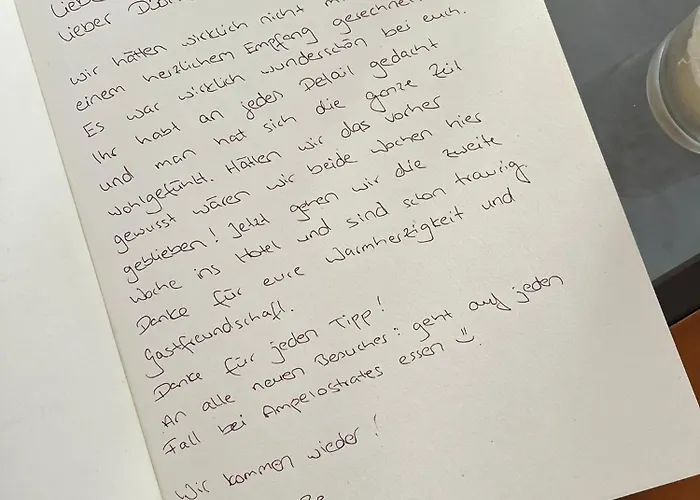 Liebe
Lieber
Wir hätten wirklich nicht
einem herzlichem Empfang gerechnet
Es war wirklich wunderschön bei euch.
Ihr habt an jedes Detail gedacht
und man hat sich die ganze Zeit
wohlgefühlt. Hätten wir das vorher
gewusst wären wir beide Wochen hier
geblieben! Jetzt gehen wir die zweite
Woche ins Hotel und sind schon traurig.
Danke für eure Warmherzigkeit und
Gastfreundschaft.
Danke für jeden Tipp!
An alle neuen Besucher: geht auf jeden
Fall bei Ampelostrates essen ☺.
Wir kommen wieder!